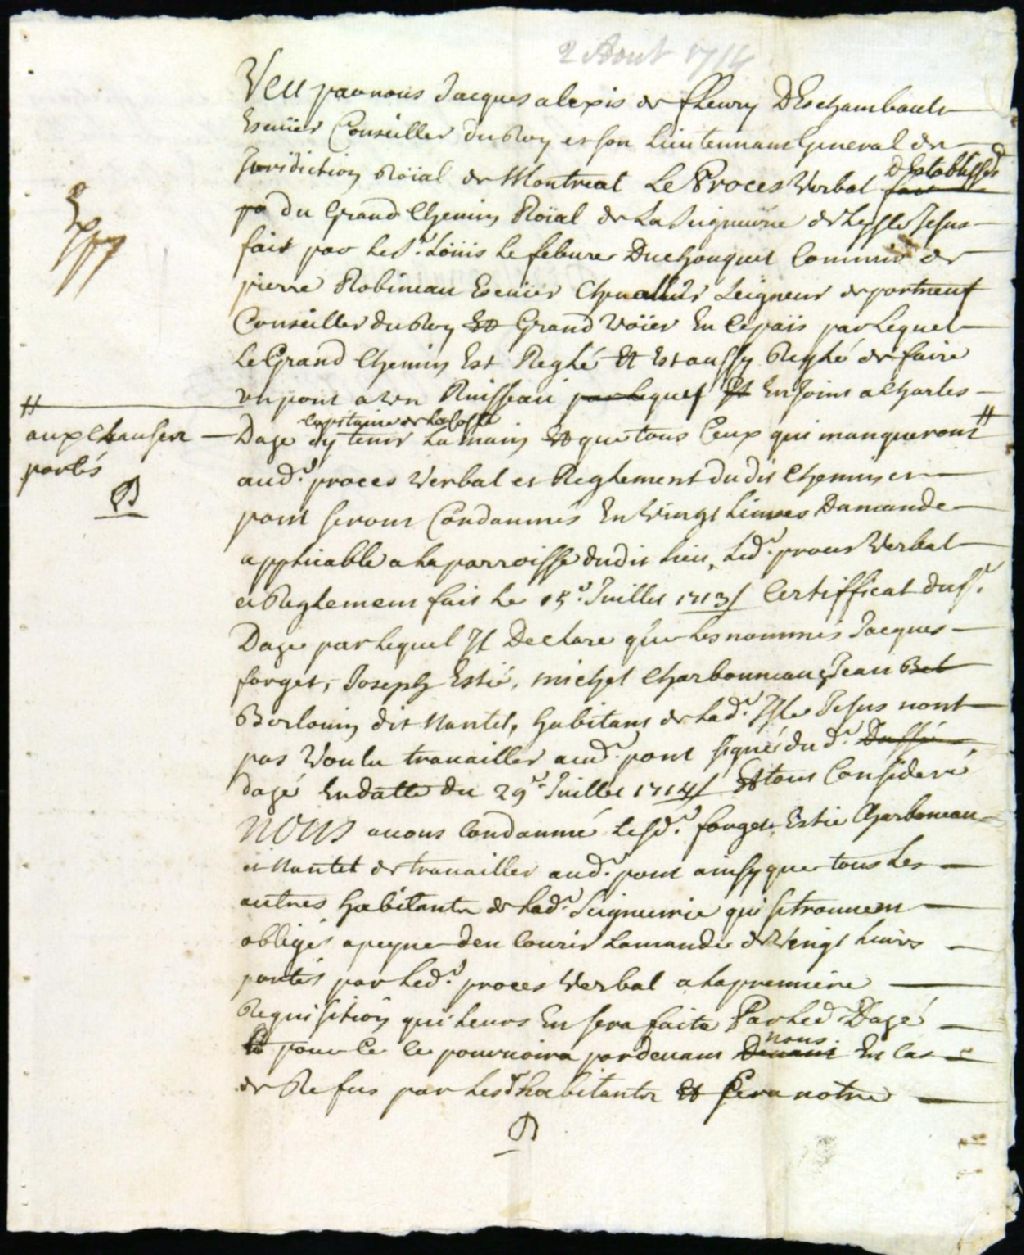 2 Aout 1714
Veu par nous Jacques alexis de fleury DEschambault
Escuier Conseiller du Roy et son Lieutennant General de
Juridiction Roïal de Montreal Le Proces Verbal
D'Establissem.t
du Grand Chemin Roïal de La Seigneurie de Lysle Jesus
fait par le S.r Loüis Le febure Duchouquet Commis de
pierre Robineau Escuier Chevallier Seigneur de portneuf
Conseiller du Roy Et Grand Voïer En Ce païs par Lequel
Le Grand Chemin Est Reglé Et Est aussy Reglé de faire
un pont a un Ruisseau par lequel Et Enjoins a Charles
#
aux Chauserr
portés
Capitaine de la Coste
Dazé dy tenir La main Et que tous Ceux qui manqueront #
aud.t proces Verbal et Reglement dudit Chemin et
pont seront Condamnés En Vingt Livres Damande
applicable a la parroisse dudit lieu, Led.t proces Verbal
et Reglement fait Le 15.e Juillet 1713 / Certifficat du S.r
Dazé par Lequel Il Declare que Les nommés Jacques
forget, Joseph Estié, michel Charbonneau, Jean Bel
Berlouin dit Nantel, habitans de lad.te Isle Jesus nont
pas Voulu travailler aud.t pont signé dud.t
dazé En datte du 29.e Juillet 1714 / Et tout Consideré
NOUS avons Condamné Lesd.t forget, Estié Charboneau
et Nantel de travailler aud.t pont ainsy que tous Les
autres habitants de Lad.te Seigneurie qui se trouvent
obligés a peyne den Courir Lamande de Vingt Livres
portés par Led.t proces Verbal a la premiere
Requisition qui Leurs En sera faite Par Led Dazé
nous
pour Ce le pourvoira par devant Devant En Cas
de Refus par Lesd.t habitants Et sera notre